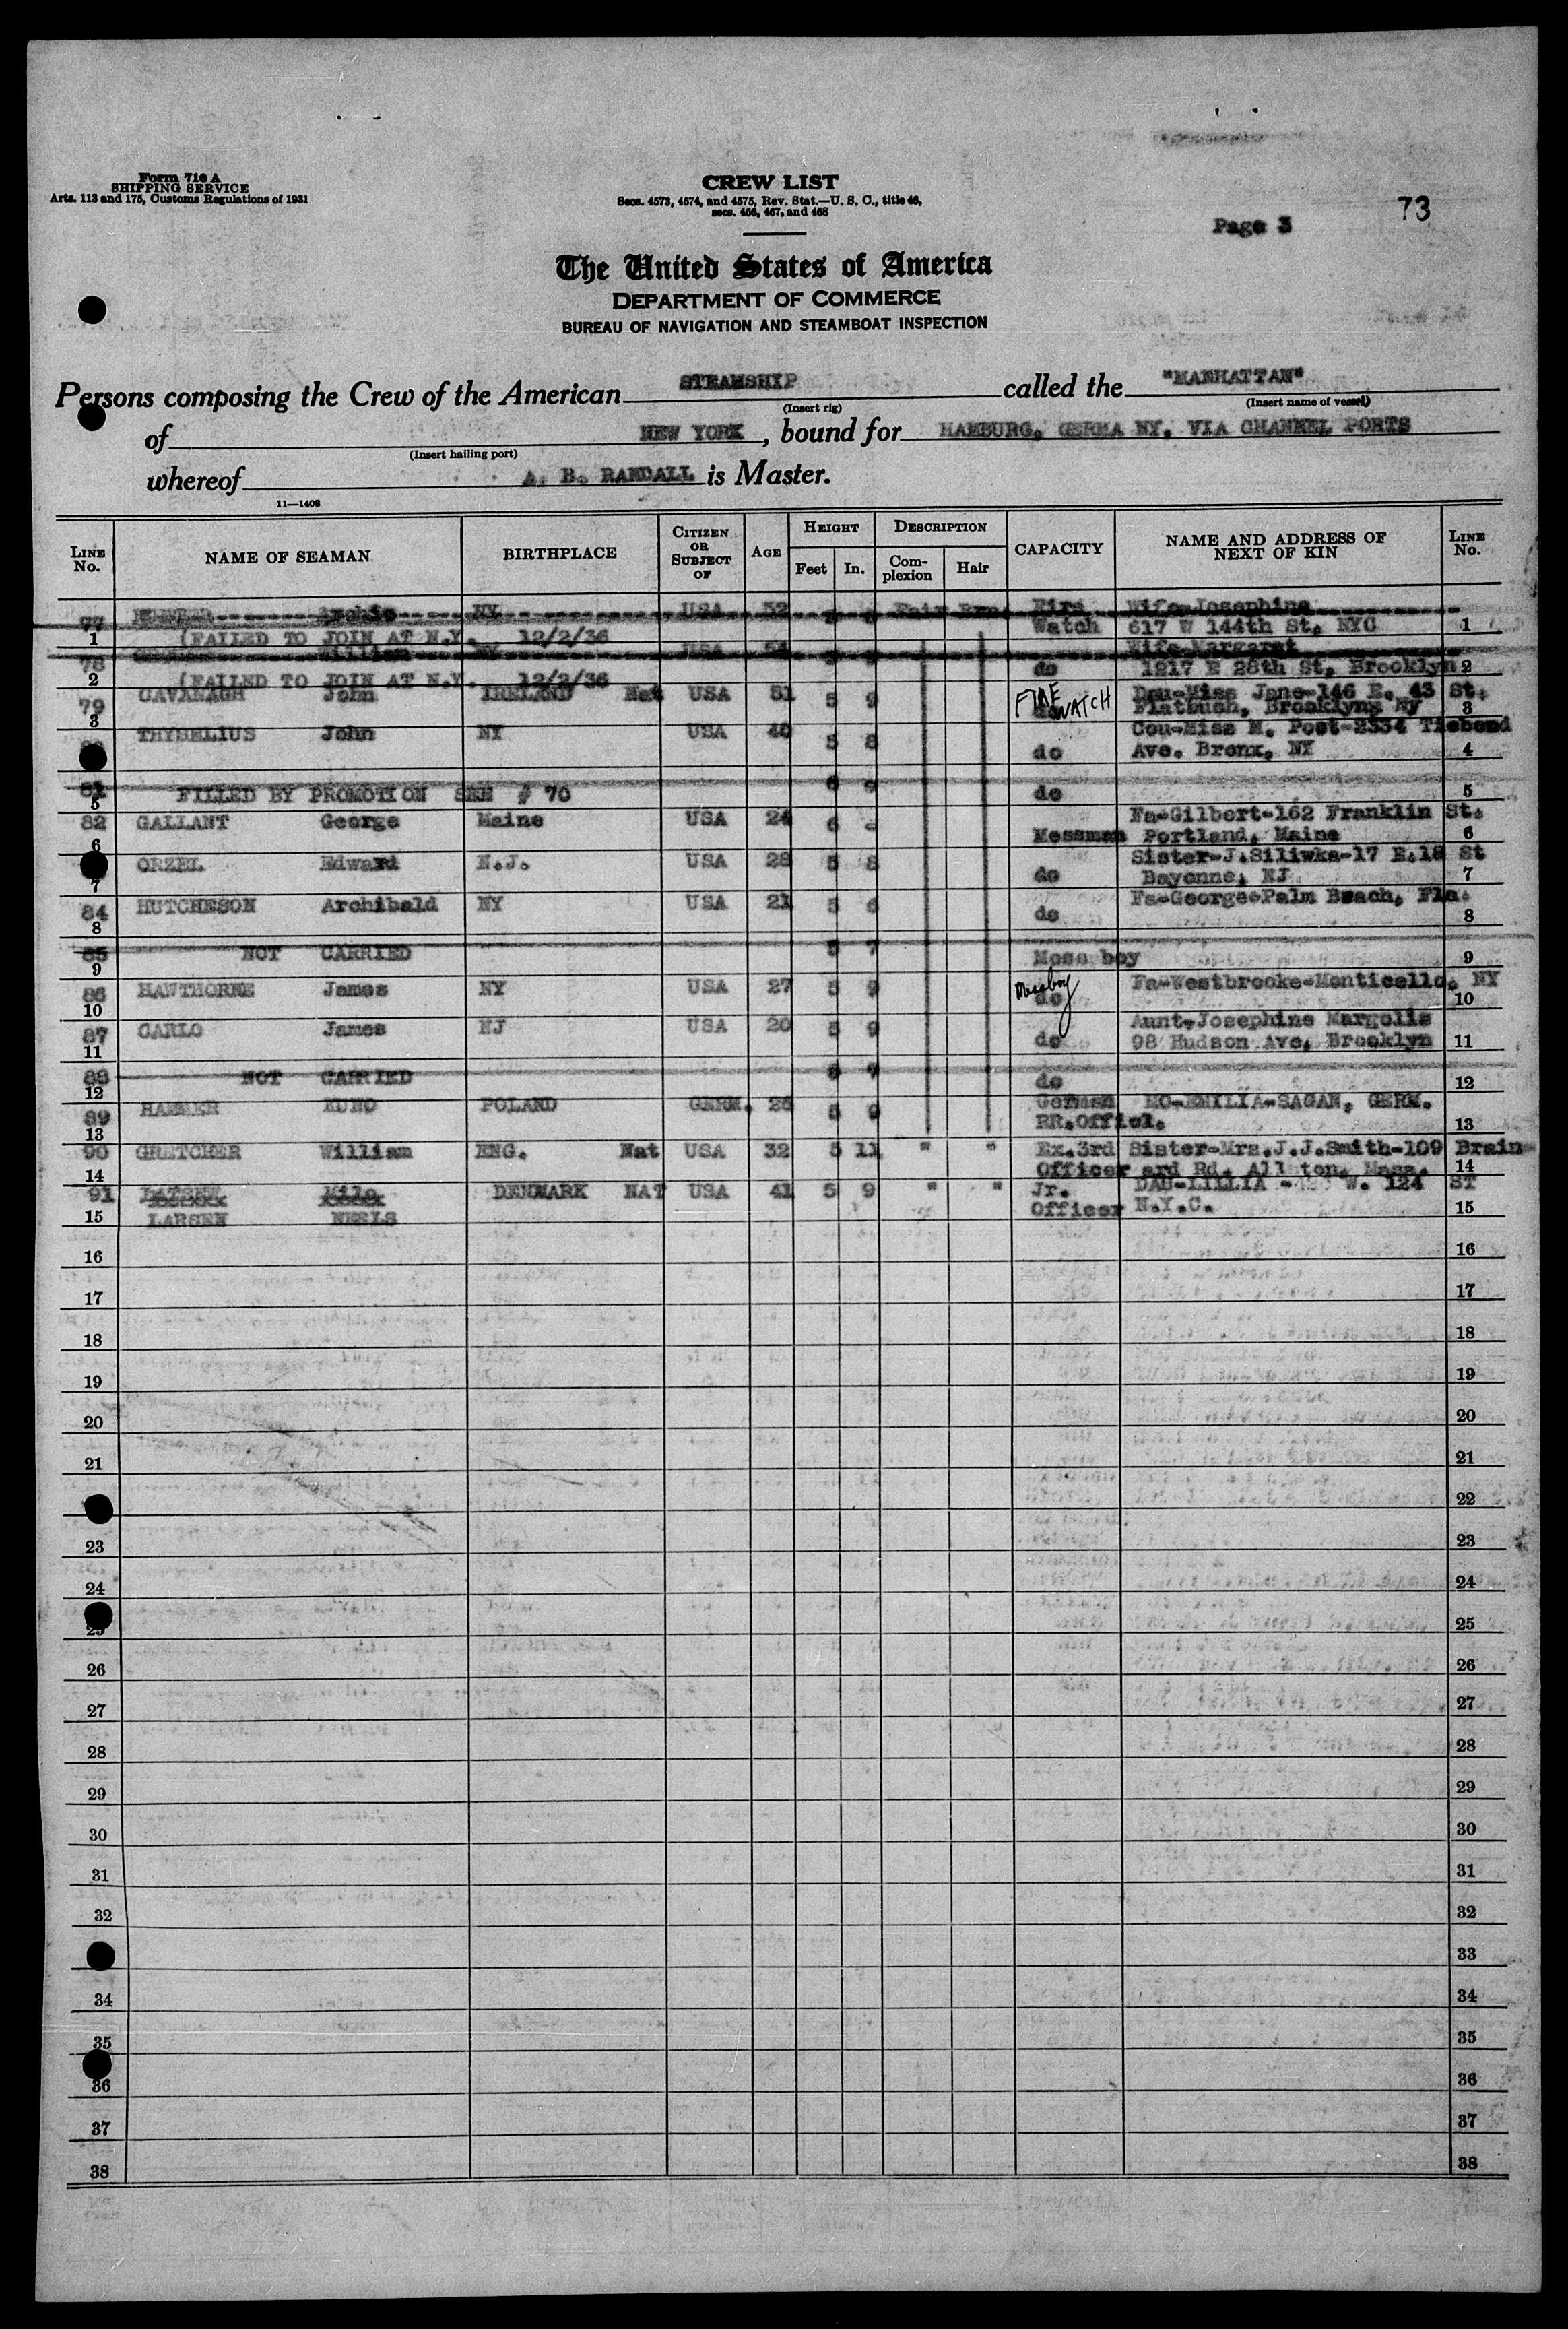 Form 710 A
SHIPPING SERVICE
Arts. 113 and 175, Customs Regulations of 1931
CREW LIST
Secs. 4573, 4574, and 4575, Rev. Stat.—U. S. C., title 46,
secs. 466, 467, and 468
Page 3
73
The United States of America
DEPARTMENT OF COMMERCE
BUREAU OF NAVIGATION AND STEAMBOAT INSPECTION
Persons composing the Crew of the American STEAMSHIP called the "MANHATTAN"
(Insert rig) (Insert name of vessel)
of NEW YORK, bound for HAMBURG, GERMA NY, VIA CHANNEL PORTS
(Insert hailing port)
whereof A. B. RANDALL is Master.
11—1408
LINE No. NAME OF SEAMAN BIRTHPLACE CITIZEN OR SUBJECT OF AGE HEIGHT Feet In. DESCRIPTION Complexion Hair CAPACITY NAME AND ADDRESS OF NEXT OF KIN LINE No.
77 Archie NY USA 52 Fair Bro Fire Wife-Josephine
1 (FAILED TO JOIN AT N.Y. 12/2/36 Watch 617 W 144th St, NYC 1
78 William NY USA Wife-Margaret
2 (FAILED TO JOIN AT N.Y. 12/2/36 do 1217 E 28th St, Brooklyn 2
79 CAVANAGH John IRELAND Nat USA 51 5 9 FIRE WATCH Dau-Miss Jane-146 E. 43 St.
3 do Flatbush, Brooklyn, Ny 3
THYSELIUS John NY USA 40 5 8 Cou-Miss M. Post-2334 Tiebond
do Ave. Bronx, NY 4
81 6 9
5 FILLED BY PROMOTION SEE # 70 do 5
82 GALLANT George Maine USA 24 6 - Fa-Gilbert-162 Franklin St.
6 Messman Portland, Maine 6
ORZEL Edward N.J. USA 28 5 8 Sister-J.Siliwka-17 E.18 St
7 do Bayonne, NJ 7
84 HUTCHESON Archibald NY USA 21 5 6 Fa-George-Palm Beach, Fla.
8 do 8
85 NOT CARRIED 5 7
9 Mess boy 9
86 HAWTHORNE James NY USA 27 5 9 Messboy Fa-Westbrooke-Monticello, NY
10 do 10
87 CARLO James NJ USA 20 5 9 Aunt-Josephine Margolis
11 do 98 Hudson Ave, Brooklyn 11
88 NOT CARRIED 5 7
12 do 12
89 HAMMER KUNO POLAND GERM. 26 5 9 German MO-EMILIA-SAGAN, GERM.
13 RR.Offici. 13
90 GRETCHER William ENG. Nat USA 32 5 11 " " Ex.3rd Sister-Mrs.J.J.Smith-109 Brain
14 Officer ard Rd. All ton, Mass. 14
91 DENMARK NAT USA 41 5 9 " " Jr. DAU-LILLIA - W. 124 ST
15 LARSEN NEELS Officer N.Y.C. 15
16 16
17 17
18 18
19 19
20 20
21 21
22
23 23
24 24
25 25
26 26
27 27
28 28
29 29
30 30
31 31
32 32
33
34 34
35 35
36 36
37 37
38 38